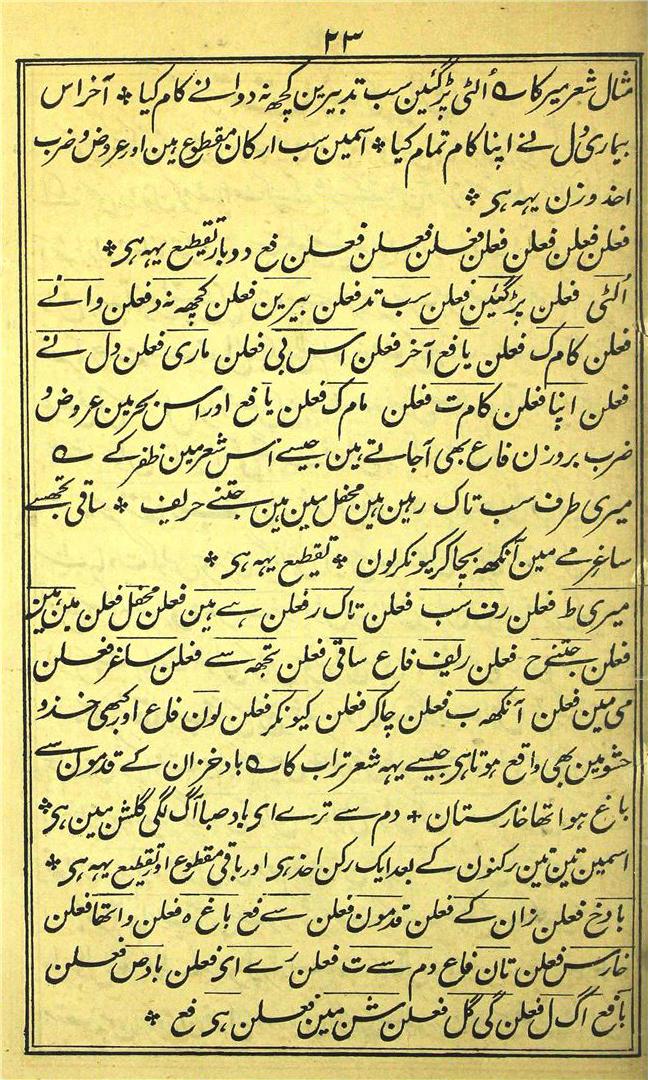 ٢٣
مثال شعر میر کا ؎ اُلٹی پڑ گئین سب تدبیرین کچھ نہ دوا نے کام کیا ٭ آخر اس
بیماری دل نے اپنا کام تمام کیا ٭ اسمین سب ارکان مقطوع ہین اور عروض و ضرب
احذ وزن یہہ ہی ٭
فعلن فعلن فعلن فعلن فعلن فعلن فعلن فع دو بار تقطیع یہہ ہی ٭
اُلٹی فعلن پڑ گئین فعلن سب تد فعلن بیرین فعلن کچھہ نہ د فعلن وا نے
فعلن کام ک فعلن یا فع آخر فعلن اس بی فعلن ماری فعلن دل نے
فعلن اپنا فعلن کام ت فعلن مام ک فعلن یا فع اور اس بحر مین عروض و
ضرب بروزن فاع بھی آجاتے ہین جیسے اس شعر مین ظفر کے ؎
میری طرف سب تاک رہین ہین محفل مین ہین جتنے حریف ٭ ساقی تجھسے
ساغر مے مین آنکھہ بچا کر کیونکر لون ٭ تقطیع یہہ ہی ٭
میری ط فعلن رف سب فعلن تاک ر فعلن ہے ہین فعلن محفل فعلن مین ہین
فعلن جتنے ح فعلن ریف فاع ساقی فعلن تجھہ سے فعلن ساغر فعلن
می مین فعلن آنکھہ ب فعلن چا کر فعلن کیونکر فعلن لون فاع اور کبھی حذذ و
حشو مین بھی واقع ہوتا ہی جیسے یہہ شعر تراب کا ؎ باد خزان کے قدمون سے
باغ ہوا تھا خارستان ٭ دم سے ترے ای باد صبا آگ لگی گلشن مین ہی ٭
اسمین تین تین رکنون کے بعد ایک رکن احذ ہی اور باقی مقطوع اور تقطیع یہہ ہی ٭
باد خ فعلن زان کے فعلن قدمون فعلن سے فع باغ ہ فعلن وا تھا فعلن
خارس فعلن تان فاع دم سے ت فعلن رے ای فعلن باد ص فعلن
با فع اگ ل فعلن گی گل فعلن شن مین فعلن ہی فع ٭